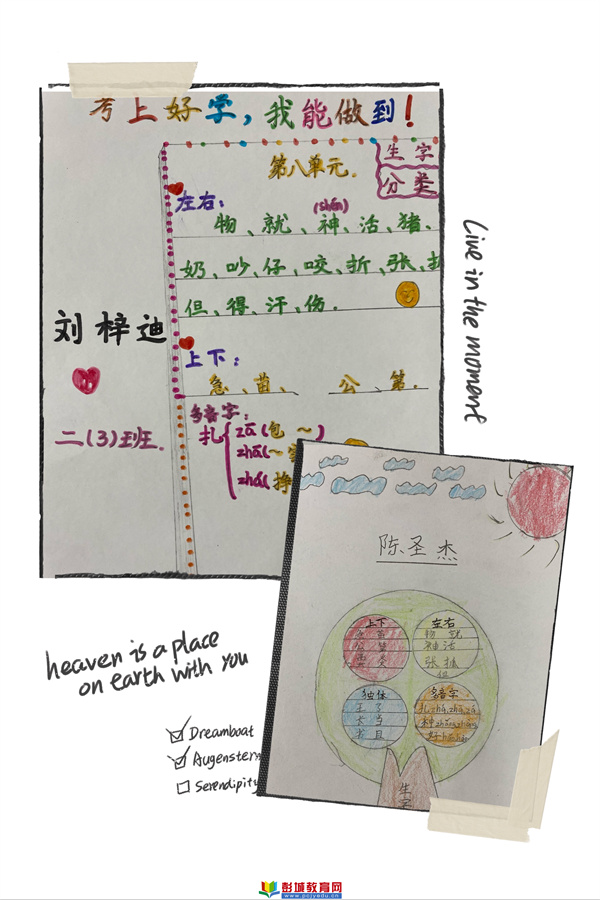 考上好学，我能做到！
生字
分类
第八单元.
左右：
(shén)
物、就、神、活、猪、
奶、吵、仔、咬、折、张、
但、得、汗、伤.
刘梓迪
上下：
急、苗、公、第.
二(3)班.
多音字：
扎
zā(包～)
zhā(～
zhá(挣
Live in the moment
陈圣杰
上下
左右
物 就
神 活
张 抓
但
独体
王 了
长 当
书 且
多音字
扎 zhá, zhā, zā
种 zhǒng zhòng
好 hǎo hào
生字
heaven is a place
on earth with you
Dreamboat
Augenstern
Serendipity
彭城教育网
www.pcjyedu.cn